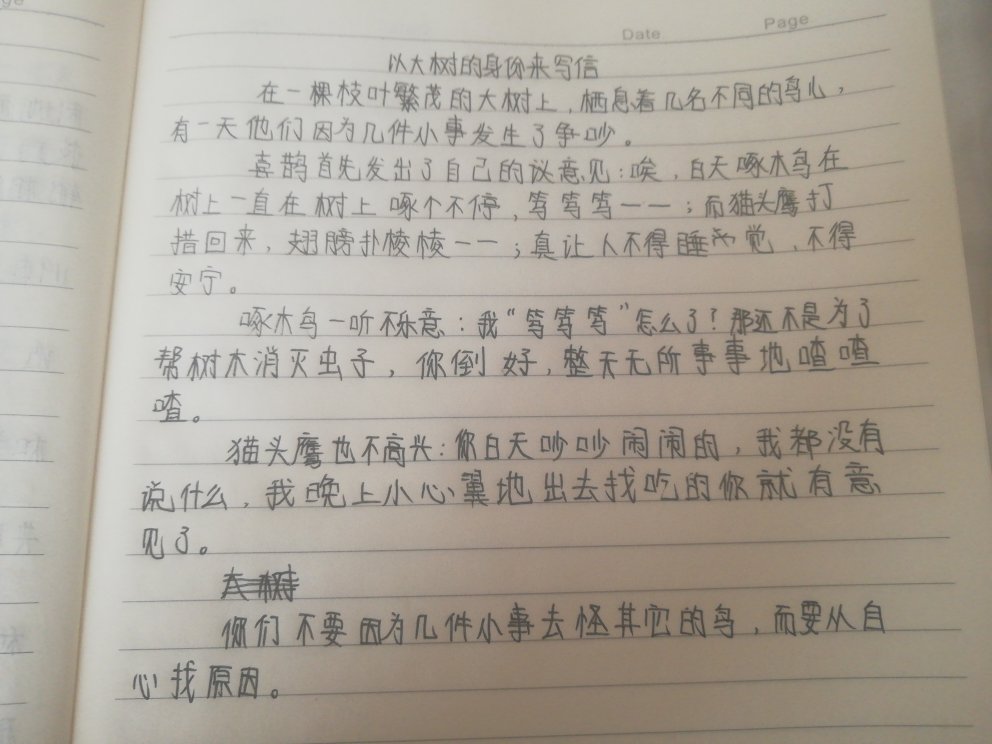 Date Page
以大树的身份来写信
在一棵枝叶繁茂的大树上，栖息着几名不同的鸟心，
有一天他们因为几件小事发生了争吵。
喜鹊首先发出了自己的议意见：唉，白天啄木鸟在
树上一直在树上啄个不停，笃笃笃一一；而猫头鹰打
措回来，翅膀扑棱棱一一；真让人不得睡觉，不得
安宁。
啄木鸟一听不乐意：我“笃笃笃”怎么了？那还不是为了
帮树木消灭虫子，你倒好，整天无所事事地喳喳
喳。
猫头鹰也不高兴：你白天吵吵闹闹的，我都没有
说什么，我晚上小心翼地出去找吃的你就有意
见了。
大树
你们不要因为几件小事去怪其它的鸟，而要从自
心找原因。